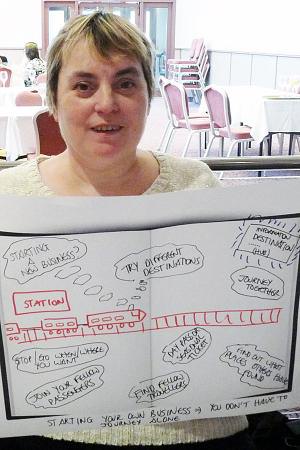 STARTING
A
NEW BUSINESS?
TRY DIFFERENT
DESTINATIONS
INFORMATION
DESTINATION
(HUB)
JOURNEY
TOGETHER
STATION
STOP/GO WHEN/WHERE
YOU WANT
TICKET
FIND OUT WHAT
PLACES OTHERS HAVE
FOUND
JOIN YOUR FELLOW
PASSENGERS
FIND FELLOW
TRAVELLERS
STARTING YOUR OWN BUSINESS → YOU DON'T HAVE TO
JOURNEY ALONE